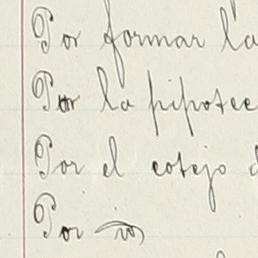 Por formar la
Por la pipotec
Por el cotejo d
Por